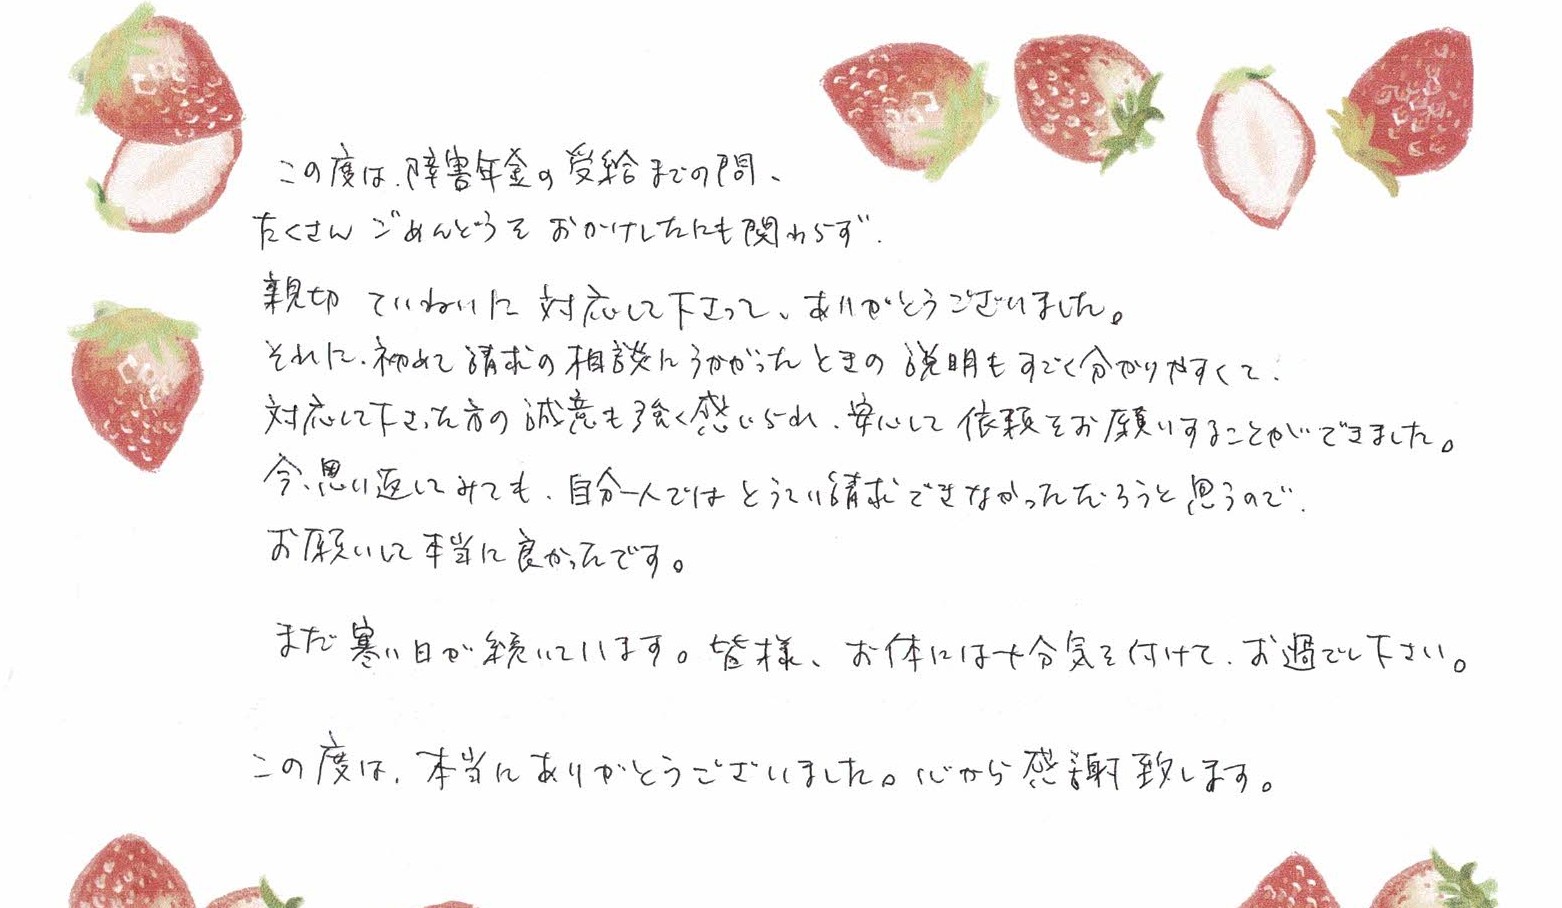 この度は、障害年金の受給までの間、
たくさんごめんどうをおかけしたにも関わらず、
親切 ていねいに 対応して下さって、ありがとうございました。
それに、初めて請求の相談にうかがったときの説明もすごく分かりやすくて、
対応して下さった方の誠意も強く感じられ、安心して依頼をお願いすることができました。
今、思い返してみても、自分一人ではとうてい請求できなかっただろうと思うので、
お願いして本当に良かったです。
まだ寒い日が続いています。皆様、お体には十分気を付けて、お過ごし下さい。
この度は、本当にありがとうございました。心から感謝致します。